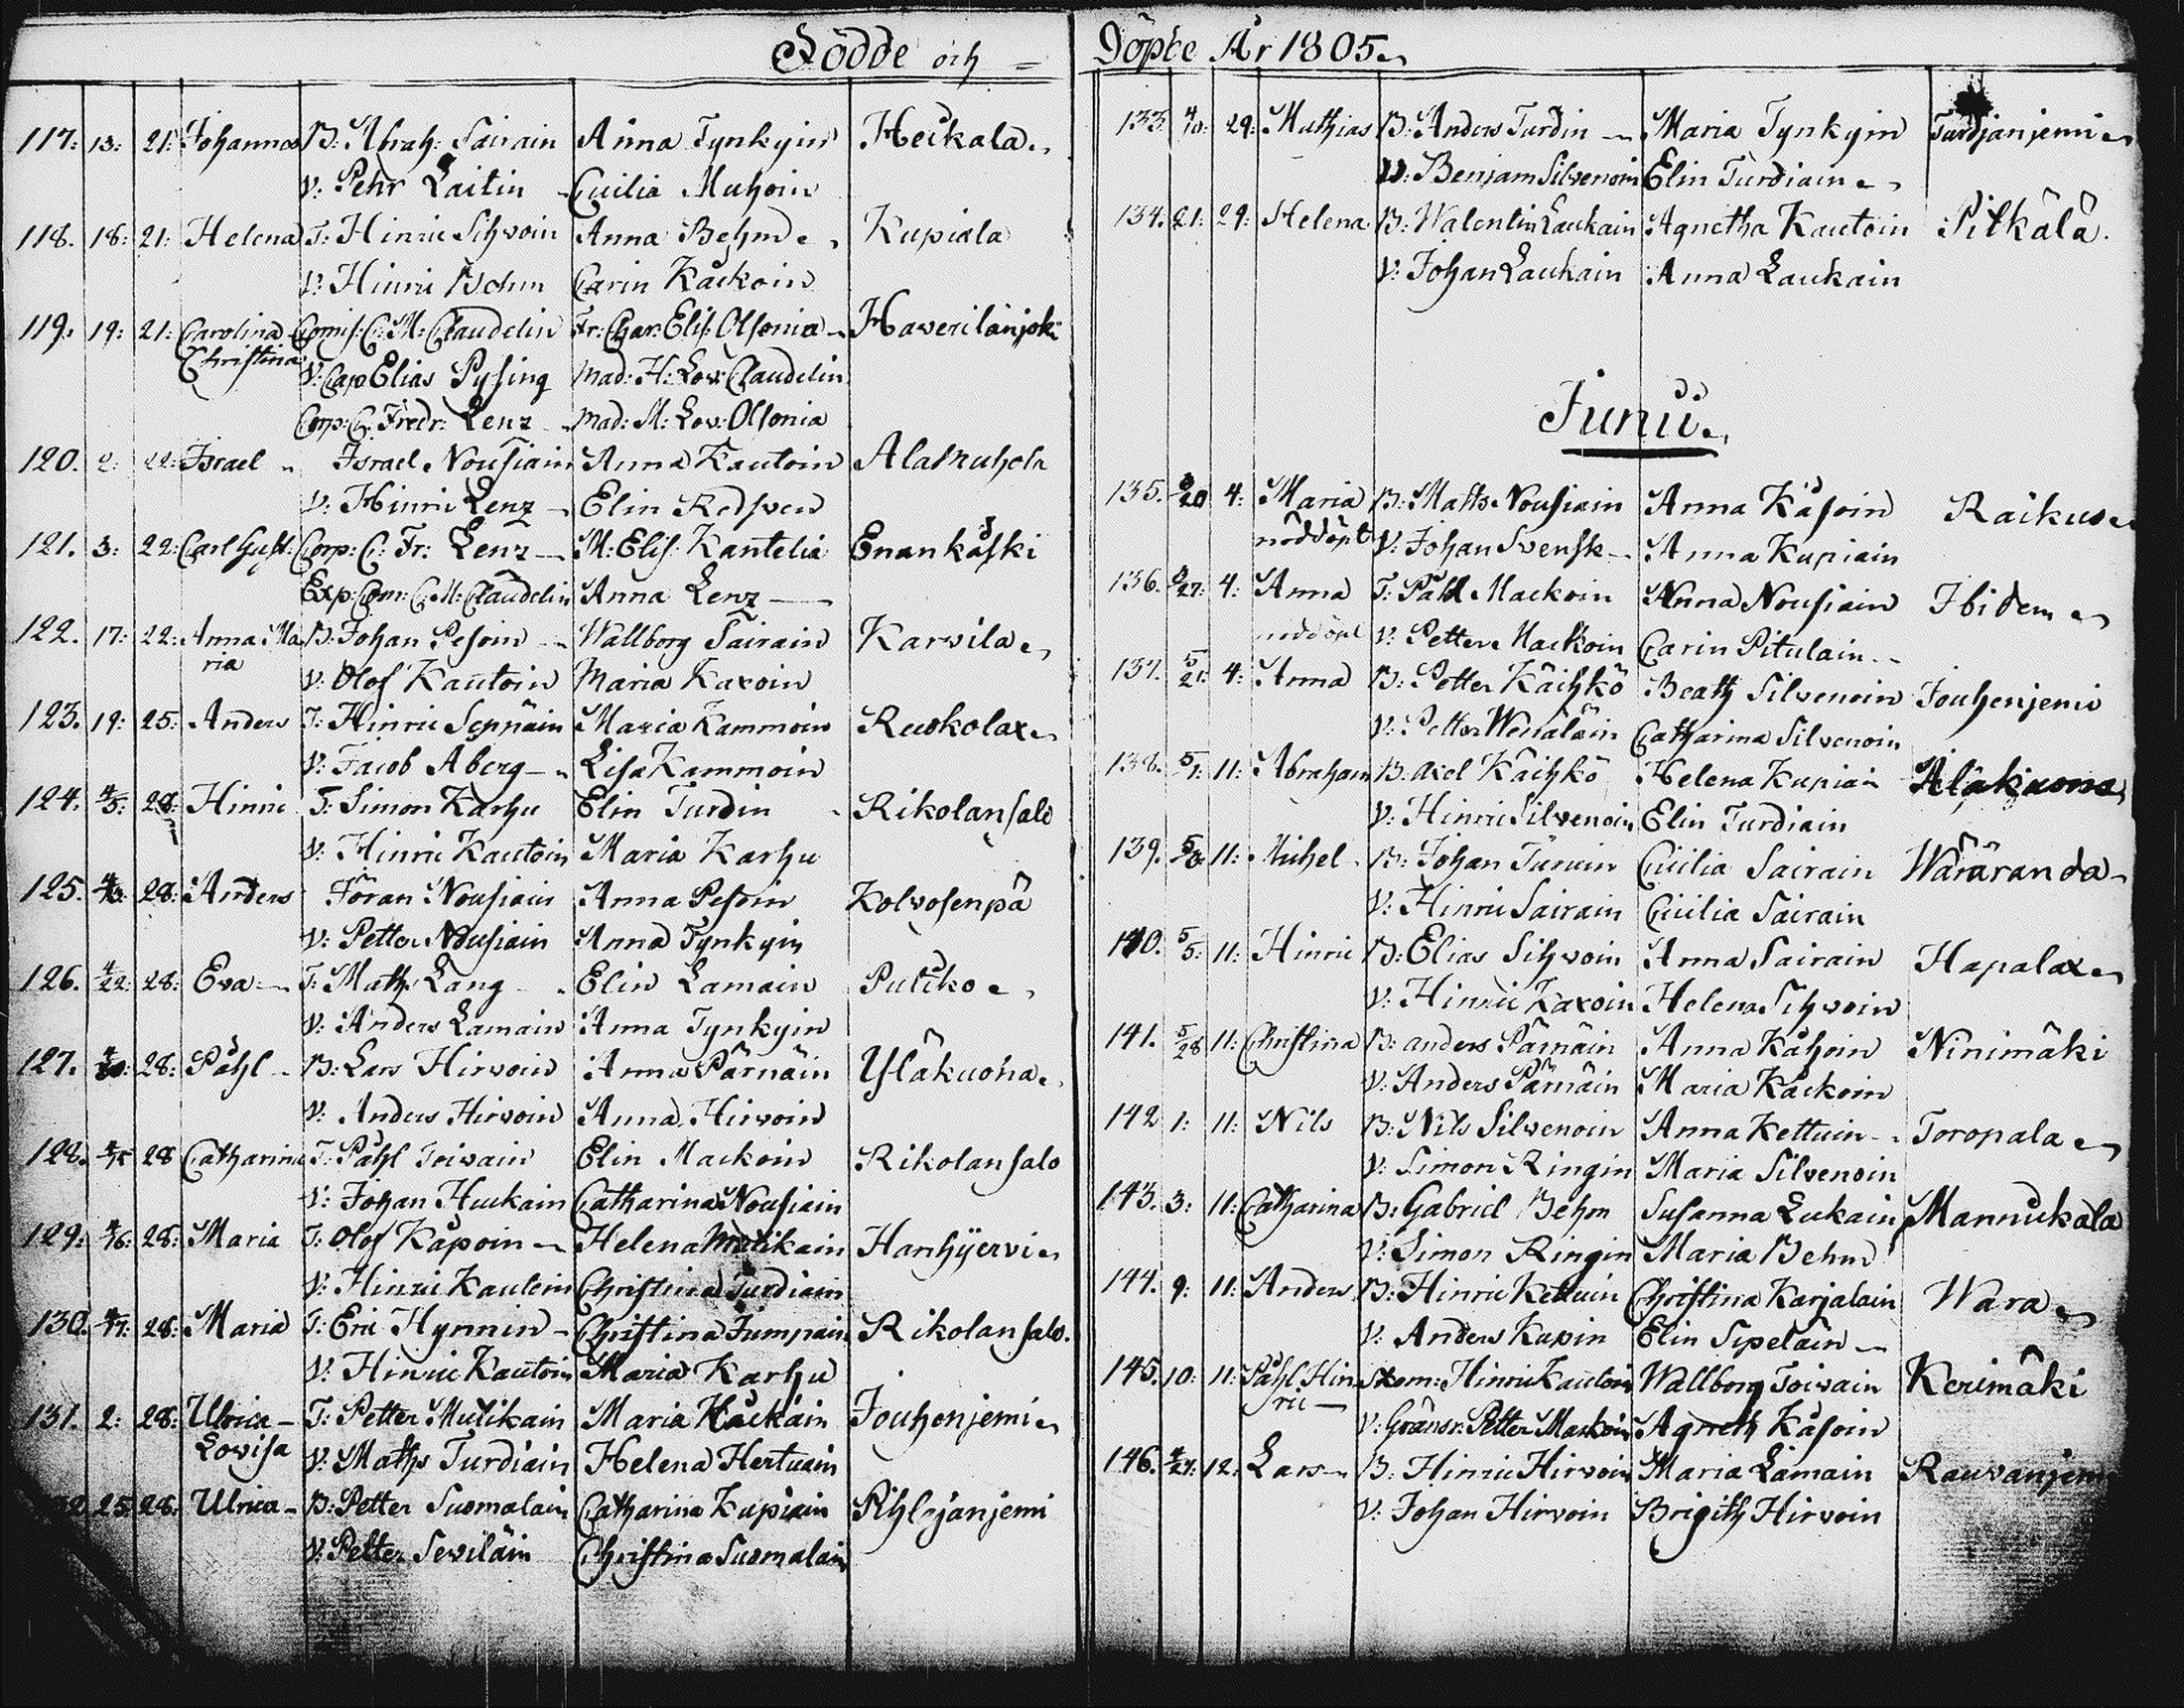 Födde och = Döpte År 1805.
117: 13: 21: Johannes B: Abrah: Sairain Anna Tynkyin Heikala
V: Pehr Laitin Cicilia Muhoin
118. 18: 21: Helena T: Hinric Sihvoin Anna Behm Kupiala
V: Hinric Behm Carin Kackoin
119. 19: 21: Carolina Comiss: C: M: Claudelin Fr: Char: Elis: Olsonia Haverilanjoki
Christina V: Cap Elias Pysing Mad: H: Lov: Claudelin
Corp: C: Fredr: Lenz Mad: M: Lov: Olsonia
120. 2: 22: Israel Israel Nousiain Anna Kautoin Alakuhola
V: Hinric Lenz Elin Redsven
121. 3: 22: Carl Gust: Corp: C: Fr: Lenz M: Elis: Kantelia Enankoski
Exp: Com: C: M: Claudelin Anna Lenz
122. 17: 22: Anna Ma B: Johan Pesoin Wallborg Sairain Karvila
ria V: Olof Kautoin Maria Kaxoin
123. 19: 25: Anders T: Hinric Seppäin Maria Kammoin Ruokolax
V: Jacob Aberg Lisa Kammoin
124. 4/5: 28: Hinric T: Simon Karhu Elin Turdin Rikolansalo
V: Hinric Kautoin Maria Karhu
125. 4/13: 28: Anders Jöran Nousiain Anna Pesoin Kolvosenpä
V: Petter Nousiain Anna Tynkyin
126. 4/22: 28: Eva T: Math: Lang Elin Lamain Pulcko
V: Anders Lamain Anna Tynkyin
127. 4/30: 28: Påhl B: Lars Hirvoin Anna Pärnäin Yläkuona
V: Anders Hirvoin Anna Hirvoin
128. 4/15 28 Catharina T: Påhl Toivain Elin Mackoin Rikolansalo
V: Johan Huckain Catharina Nousiain
129: 4/16: 28: Maria T: Olof Kåpoin Helena Mutikain Hanhijervi
V: Hinric Kautoin Christina Turdiain
130. 4/17: 28: Maria T: Eric Hynnin Christina Jumpain Rikolansalo.
V: Hinric Kautoin Maria Karhu
131. 2: 28: Ulrica T: Petter Mutikain Maria Kackain Jouhenjemi
Lovisa V: Maths Turdiain Helena Hertuain
25: 28: Ulrica B: Petter Suomalain Catharina Kupiain Pihlajanjemi
V: Petter Seviläin Christina Suomalain
133. 4/10: 29: Mathias B: Anders Turdin Maria Tynkyin Turdjanjemi
V: Benjam Silvenoin Elin Turdiain
134. 21: 29: Helena B: Walentin Laukain Agnetha Kautoin Pitkälä.
V: Johan Laukain Anna Laukain
Junii.
135. 3/20 4: Maria B: Maths Nousiain Anna Kåsoin Raikus
nöddöpt V: Johan Svensk Anna Kupiain
136. 3/27: 4: Anna T: Påhl Mackoin Anna Nousiain Ibidem
nöddöpt V: Petter Mackoin Carin Pitulain
137. 5/21: 4: Anna B: Petter Käihkö Beath Silvenoin Jouhenjemi
V: Petter Wenäläin Catharina Silvenoin
138. 5/1: 11: Abraham B: Axel Käihkö Helena Kupiain Alakuona
V: Hinric Silvenoin Elin Turdiain
139. 5/3: 11: Michel B: Johan Turuin Cicilia Sairain Wäräranda
V: Hinric Sairain Cicilia Sairain
140. 5/5: 11: Hinric B: Elias Sihvoin Anna Sairain Hapalax
V: Hinric Kaxoin Helena Sihvoin
141. 5/28 11: Christina B: Anders Pärnäin Anna Kåhoin Ninimäki
V: Anders Pärnäin Maria Kackoin
142 1: 11: Nils B: Nils Silvenoin Anna Kettuin Toropala
V: Simon Ringin Maria Silvenoin
143. 3: 11: Catharina B: Gabriel Behm Susanna Lukain Mannukala
V: Simon Ringin Maria Behm
144. 9: 11: Anders B: Hinric Kettuin Christina Karjalain Wara
V: Anders Kapin Elin Sipeläin
145. 10: 11: Påhl Hin Skom: Hinric Kautoin Wallborg Toivain Kerimäki
ric V: Gränsr: Petter Mackoin Agneth Kåsoin
146. 4/27: 12: Lars B: Hinric Hirvoin Maria Lamain Rauvanjemi
V: Johan Hirvoin Brigith Hirvoin